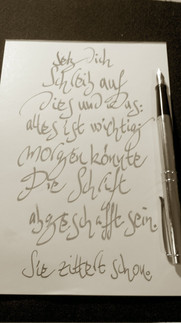 Setz Dich
Schreib auf
Dies und Das:
alles ist wichtig
morgen könnte
Die Schrift
abgeschafft sein.
Sie zittert schon.